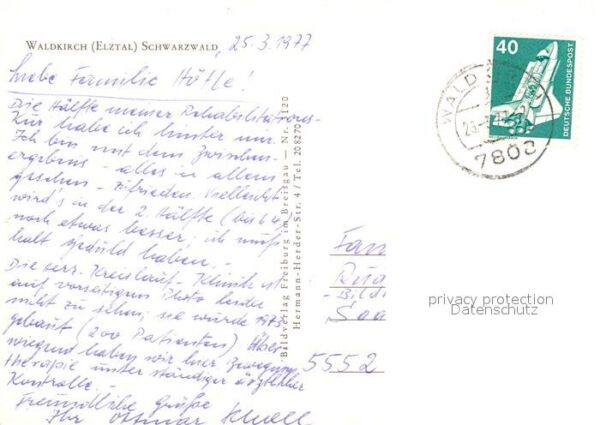 WALDKIRCH (ELZTAL) SCHWARZWALD, 25.3.1977
Liebe Familie Höfle!
Die Hälfte meiner Rehabilitations-
Kur habe ich hinter mir.
Ich bin mit dem Zwischen-
ergebnis - alles in allem
gesehen - zufrieden. Vielleicht
wird's in der 2. Hälfte (bis 6.4.)
noch etwas besser; ich muß
halt geduld haben. -
Die Kreislauf-Klinik ist
auf vorseitigem Photo leider
nicht zu sehen; sie wurde 1975
gebaut (200 Patienten). Über-
wiegend haben wir hier Bewegungs-
therapie unter ständiger ärztlicher
Kontrolle.
Freundliche Grüße
Ihr Ottmar
Bildverlag Freiburg im Breisgau — Nr. 7120
Hermann-Herder-Str. 4 / Tel. 208270
40
DEUTSCHE BUNDESPOST
WALD
7808
Fam
5552
privacy protection
Datenschutz